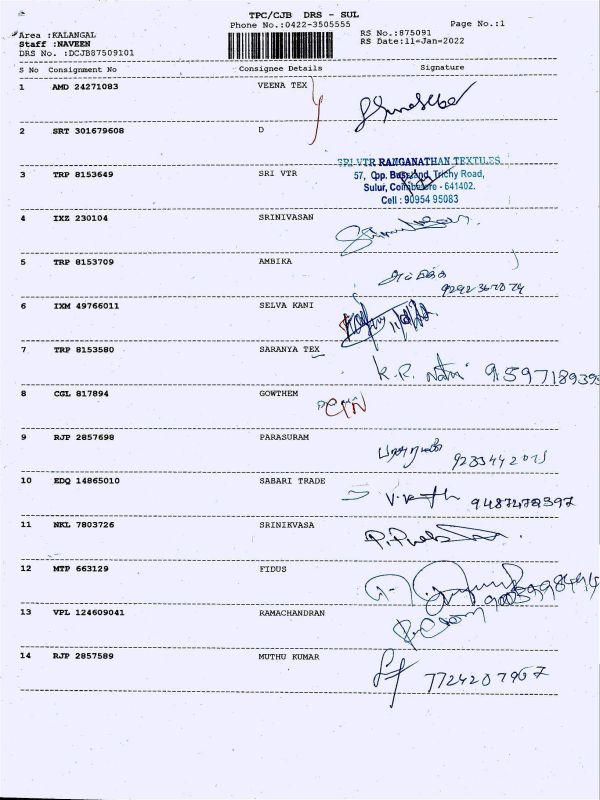 TPC/CJB DRS - SUL
Phone No.:0422-3505555
Page No.:1
Area :KALANGAL
Staff :NAVEEN
DRS No. :DCJB87509101
RS No.:875091
RS Date:11-Jan-2022
S No Consignment No Consignee Details Signature
1 AMD 24271083 VEENA TEX
2 SRT 301679608 D
3 TRP 8153649 SRI VTR
SRI VTR RANGANATHAN TEXTILES
57, Opp. Busstand, Trichy Road,
Sulur, Coimbatore - 641402.
Cell : 90954 95083
4 IXZ 230104 SRINIVASAN
5 TRP 8153709 AMBIKA
6 IXM 49766011 SELVA KANI
7 TRP 8153580 SARANYA TEX
K.R.
8 CGL 817894 GOWTHEM
9 RJP 2857698 PARASURAM
10 EDQ 14865010 SABARI TRADE
11 NKL 7803726 SRINIKVASA
12 MTP 663129 FIDUS
13 VPL 124609041 RAMACHANDRAN
14 RJP 2857589 MUTHU KUMAR
7724207967